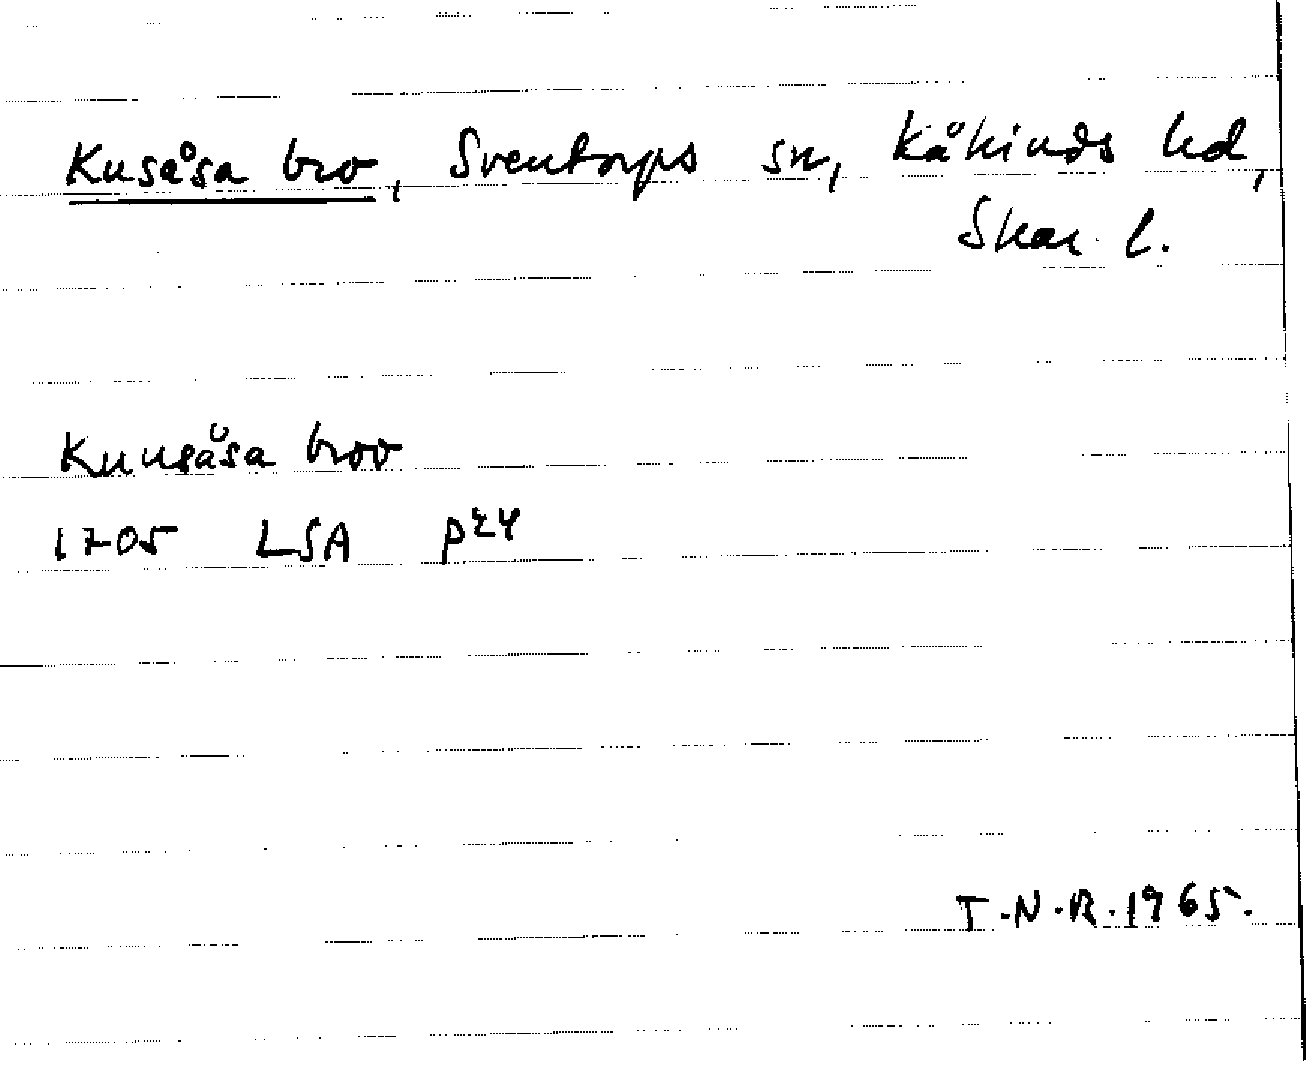 Kusåsa bro, Sventorps sn, Kåkinds hd,
Skar. l.
Kuusåsa broo
1705 LSA p24
T.N.R. 1965.